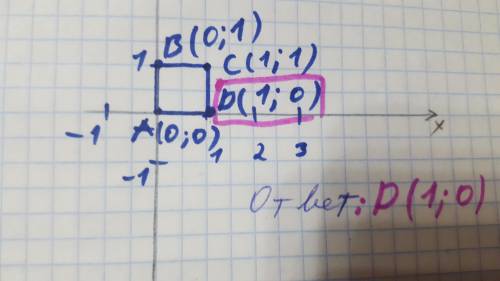 B(0;1)
1 C(1;1)
D(1;0)
-1 A(0;0) 1 2 3 x
-1
Ответ: D(1;0)